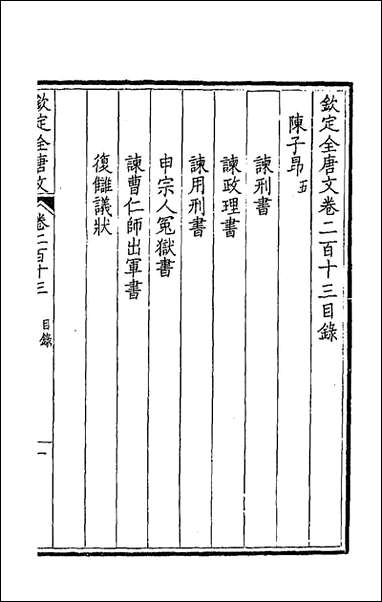 欽定全唐文卷二百十三目錄
陳子昂五
諫刑書
諫政理書
諫用刑書
申宗人冤獄書
諫曹仁師出軍書
復讎議狀
欽定全唐文
卷二百十三
目錄
一